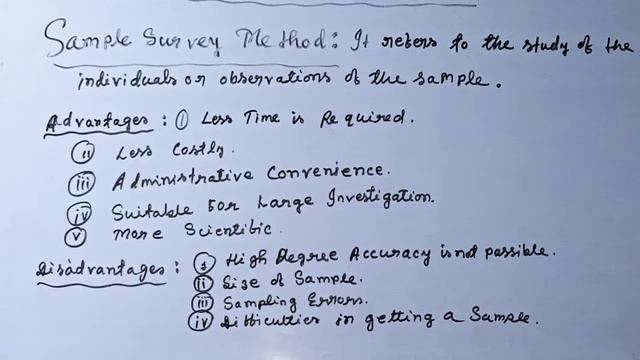 Sample Survey Method: It refers to the study of the
individuals or observations of the sample.
Advantages: (i) Less Time is Required.
(ii) Less Costly.
(iii) Administrative Convenience.
(iv) Suitable for Large Investigation.
(v) More Scientific.
Disadvantages: (i) High Degree Accuracy is not possible.
(ii) Size of Sample.
(iii) Sampling Errors.
(iv) Difficulties in getting a Sample.